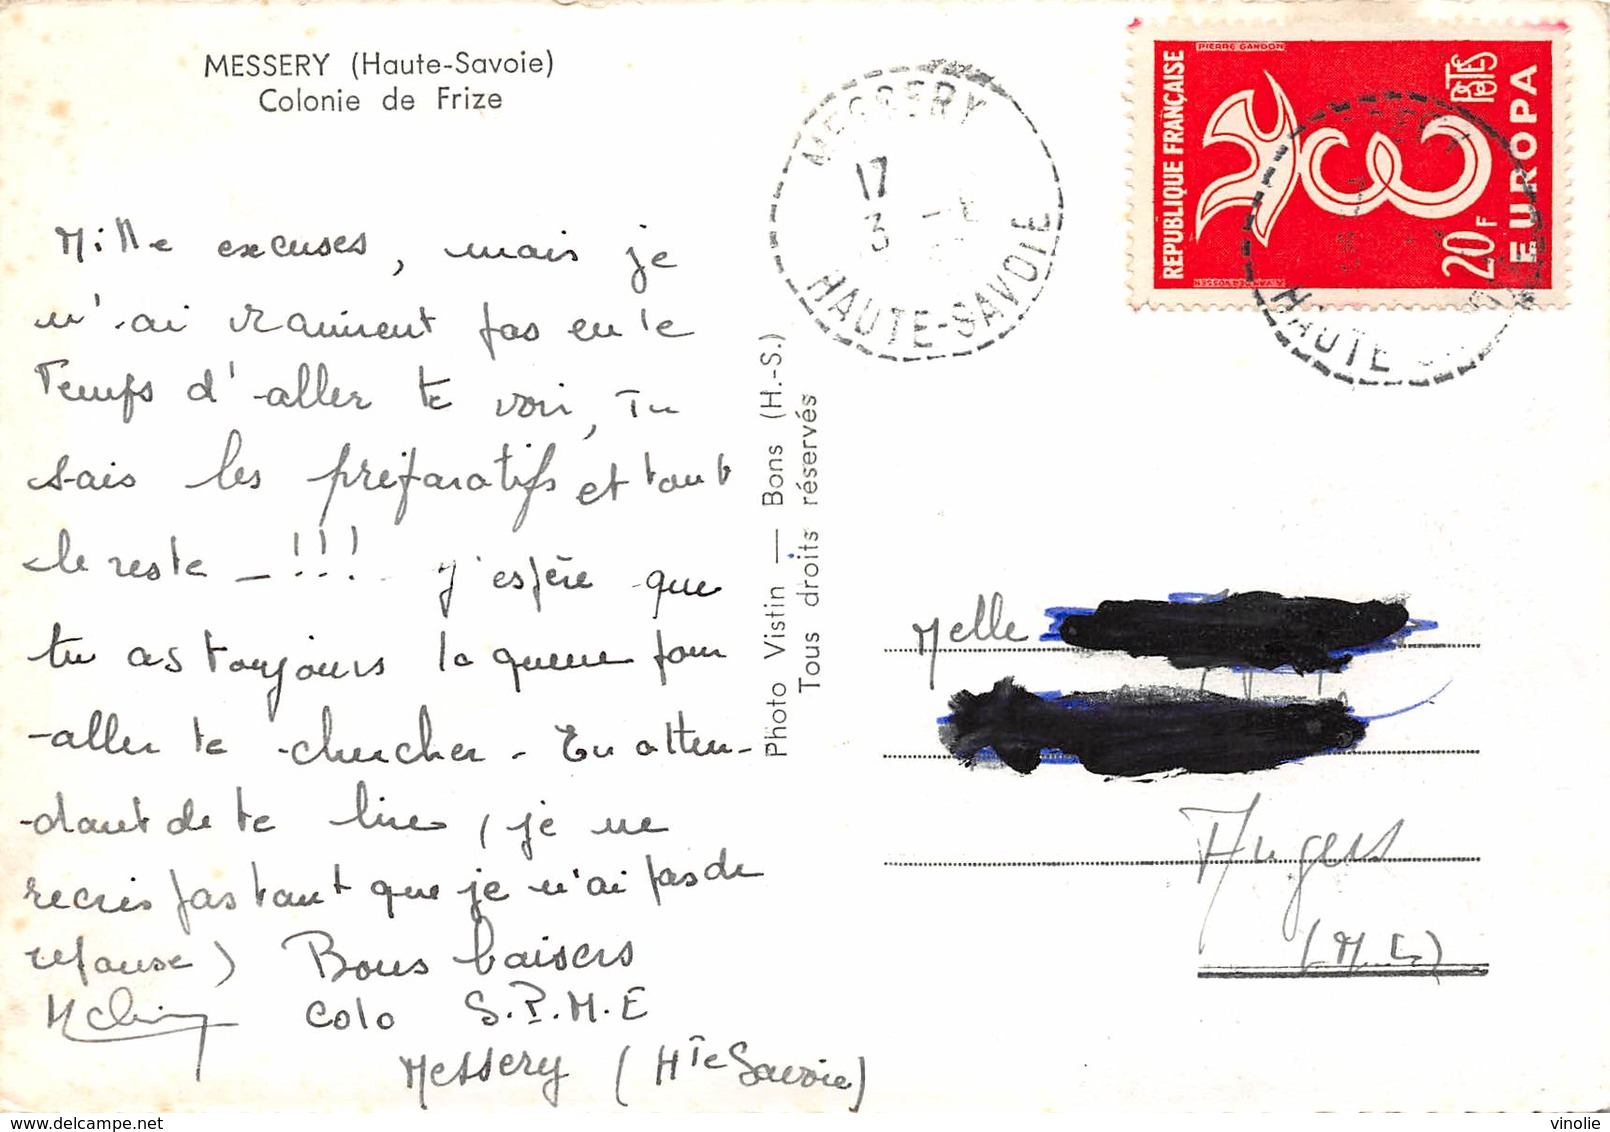 MESSERY (Haute-Savoie)
Colonie de Frize
Mille excuses, mais je
n'ai vraiment pas eu le
Temps d'aller te voir, Tu
sais les préparatifs et tout
le reste - !!! - J'espère que
tu as toujours la queue pour
aller te chercher - En atten-
dant de te lire, (je ne
recris pas tant que je n'ai pas de
reponse) Bons baisers
colo S.P.M.E
Messery (Hte Savoie)
Photo Vistin — Bons (H.-S.)
Tous droits réservés
MESSERY
17
3
HAUTE-SAVOIE
PIERRE GANDON
REPUBLIQUE FRANÇAISE
POSTES
20F
EUROPA
HAUTE
Melle
Angers
(M.L)
vinolie